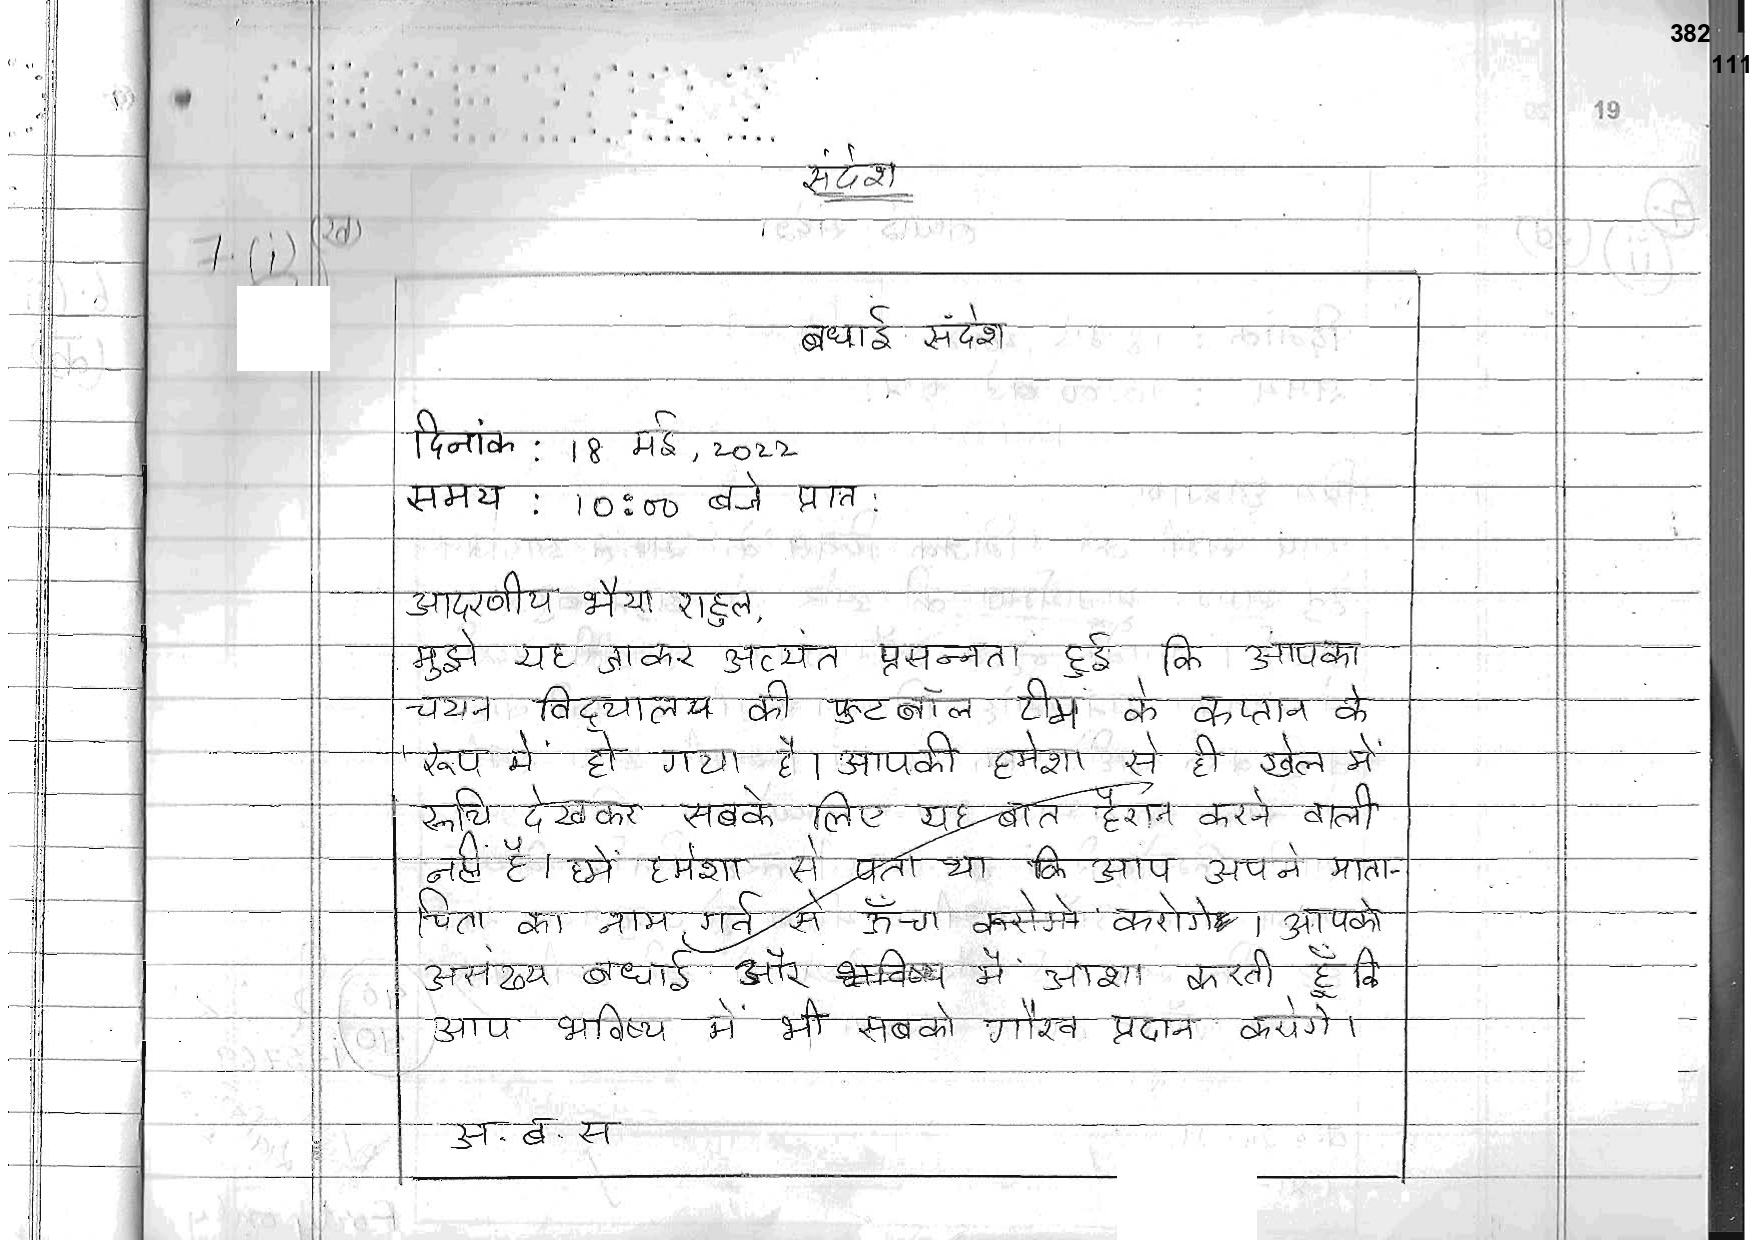 382
111
CBSE2022
19
संदेश
7. (i) (ख)
बधाई संदेश
दिनांक : 18 मई, 2022
समय : 10:00 बजे प्रात:
आदरणीय भैया राहुल,
मुझे यह जाकर अत्यंत प्रसन्नता हुई कि आपका
चयन विद्यालय की फुटबॉल टीम के कप्तान के
रूप में हो गया है। आपकी हमेशा से ही खेल में
रूचि देखकर सबके लिए यह बात हैरान करने वाली
नहीं है। हमें हमेशा से पता था कि आप अपने माता-
पिता का नाम गर्व से ऊँचा करोगे। आपको
असंख्य बधाई और भविष्य में आशा करती हूँ कि
आप भविष्य में भी सबको गौरव प्रदान करोगे।
अ. ब. स